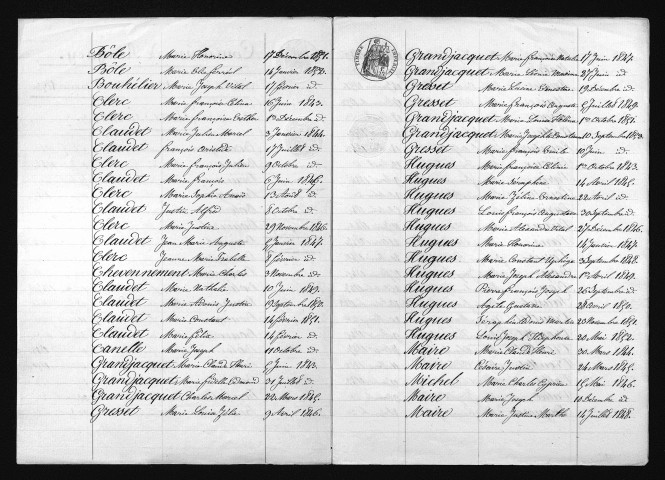 Bôle Marie Honorine 17 Décembre 1851.
Bôle Marie Célie 14 Janvier 1852.
Bouhélier Marie Joseph Vital 17 février id.
Clerc Marie françoise Célina 16 Juin 1843.
Clerc Marie françoise 1er Décembre id.
Claudet Marie Julien Marcel 3 Janvier 1844.
Claudet françois Aristide 17 Juillet id.
Clerc Marie françois Julien 9 Octobre id.
Claudet Marie françois 6 Juin 1845.
Clerc Marie Sophie Anaïs 13 Août id.
Claudet Justin Alfred 8 Octobre id.
Clerc Marie Justin 29 Novembre 1846.
Claudet Jean Marie Auguste Janvier 1847.
Clerc Jeanne Marie Isabelle 8 février id.
Chevennement Marie Charles 3 Novembre id.
Claudet Marie Nathalie 10 Juin 1849.
Claudet Marie Justin Septembre 1850.
Claudet Marie Constant 14 février 1851.
Claudet Marie Célia 14 février id.
Canelle Marie Joseph 11 Octobre id.
Grandjacquet Marie Claude Juin 1843.
Grandjacquet Marie Fidelle Edmond 31 Juillet id.
Grandjacquet Charles Marcel 22 Mars 1845.
Gresset Marie Louise Zélie 9 Avril 1846.
Grandjacquet Marie françoise Natalie 17 Juin 1847.
Grandjacquet Marie 27 Juin id.
Gresset Marie 19 Décembre id.
Gresset Marie françois Auguste Juillet 1849.
Grandjacquet Marie Louise 1er Octobre 1851.
Grandjacquet Marie Joseph 10 Septembre 1852.
Gresset Marie françois Emile 10 Juin id.
Hugues Marie françoise 1er Octobre 1843.
Hugues Marie Séraphine 14 Avril 1845.
Hugues Marie Zéline Ernestine 22 Avril id.
Hugues Louis françois Augustin 30 Septembre id.
Hugues Marie Alexandre Vital 27 Décembre 1846.
Hugues Marie Honorine 14 Janvier 1847.
Hugues Marie Constant Septembre 1848.
Hugues Marie Joseph Alexandre 1er Avril 1849.
Hugues Pierre françois Joseph 26 Septembre id.
Hugues Agile Gustave 28 Avril 1850.
Hugues Séraphin 23 Novembre 1851.
Hugues Louis Joseph Stéphane 20 Mai 1852.
Maire Marie 20 Mars 1844.
Maire Césaire Justin 24 Mars 1845.
Michel Marie Charles Cyprien 15 Mai 1846.
Maire Marie Joseph 10 Décembre id.
Maire Marie Justine Marthe 14 Juillet 1848.